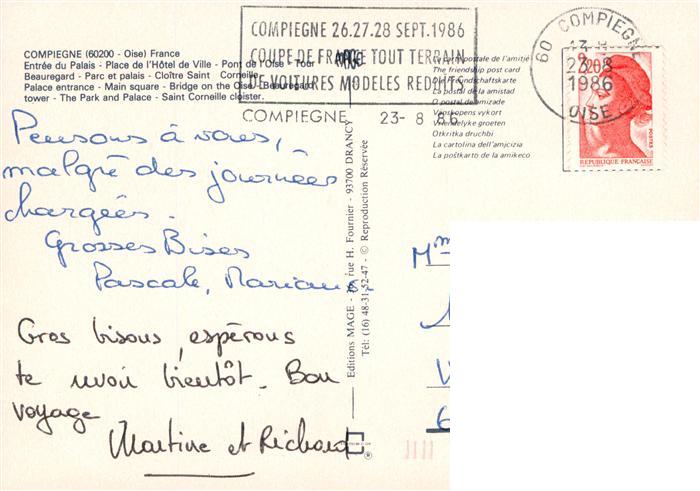 COMPIEGNE 26.27.28 SEPT.1986
COUPE DE FRANCE TOUT TERRAIN
DE VOITURES MODELES REDUITS
COMPIEGNE 23-8 86
60 COMPIEGNE
23-8
1986
OISE
2,20
POSTES
REPUBLIQUE FRANÇAISE
COMPIEGNE (60200 - Oise) France
Entrée du Palais - Place de l'Hôtel de Ville - Pont de l'Oise - Tour
Beauregard - Parc et palais - Cloître Saint Corneille
Palace entrance - Main square - Bridge on the Oise - Beauregard
tower - The Park and Palace - Saint Corneille cloister.
La carte postale de l'amitié
The friendship post card
Die Freundschaftskarte
La postal de la amistad
O postal de amizade
Venskapens vykort
Vriendelyke groeten
Otkritka druchbi
La cartolina dell'amjcizia
La postkarto de la amikeco
Pensons à vous,
malgré des journées
chargées.
Grosses Bises
Pascale,
Gros bisous, espérons
te revoir bientôt. Bon
voyage
Martine et Richard
Editions MAGE - rue H. Fournier - 93700 DRANCY
Tél: (16) 48-31-52-47 - © Reproduction Réservée
Mme